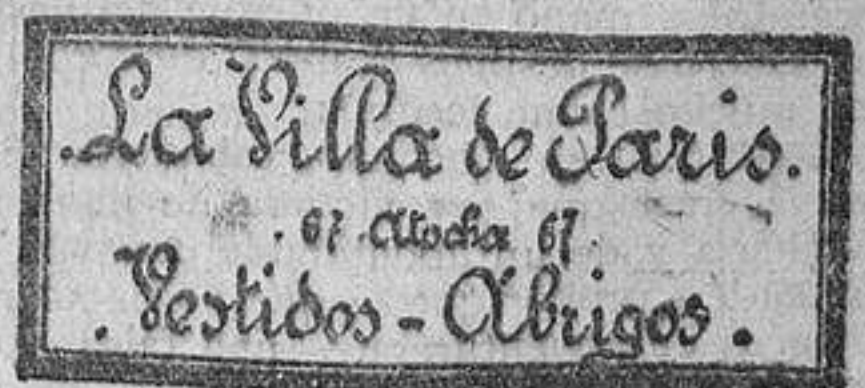 .La Villa de Paris.
. 67 Atocha 67.
. Vestidos - Abrigos.